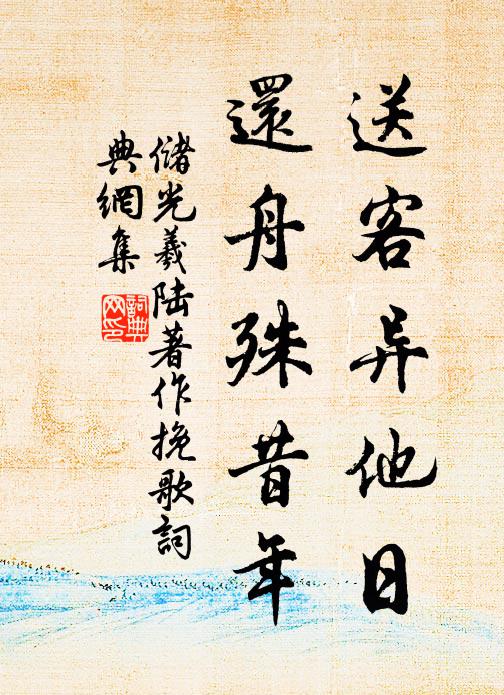 送客异他日
還舟殊昔年
儲光羲陆著作挽歌詞
典網集
詞典网印